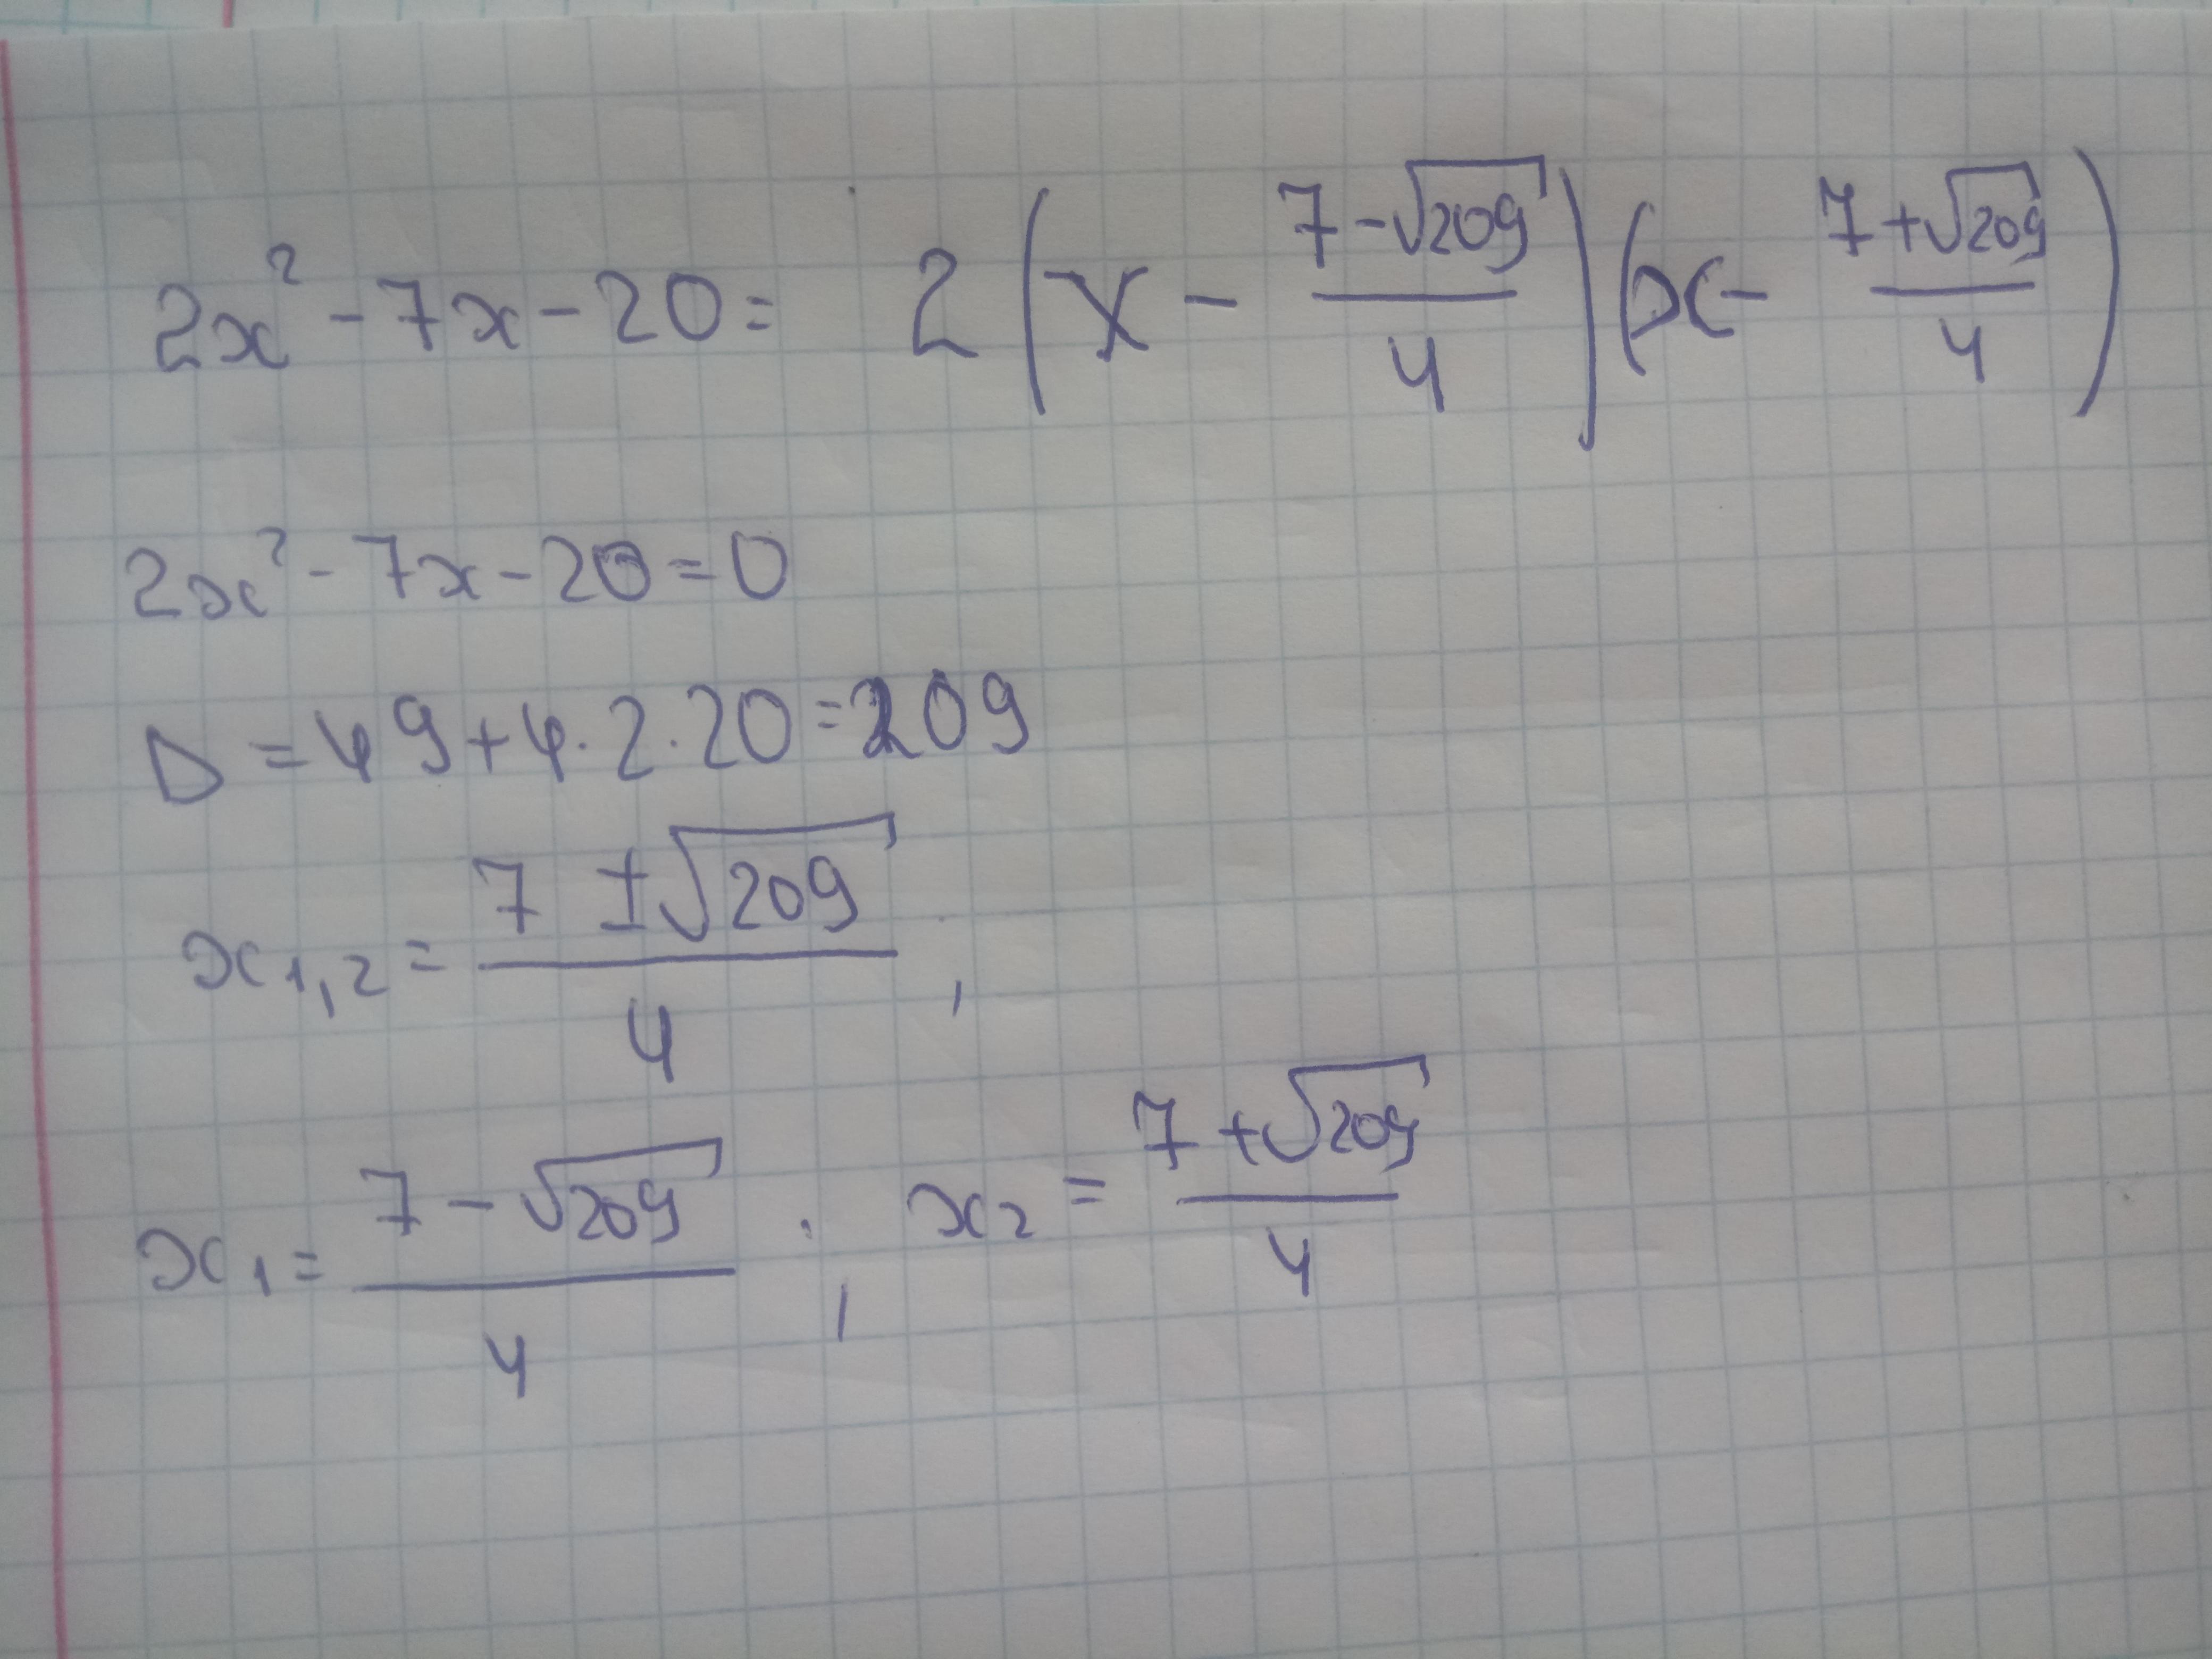 2x² - 7x - 20 = 2(x - (7 - √209)/4)(x - (7 + √209)/4)
2x² - 7x - 20 = 0
D = 49 + 4 · 2 · 20 = 209
x₁,₂ = (7 ± √209)/4 ,
x₁ = (7 - √209)/4 ; x₂ = (7 + √209)/4